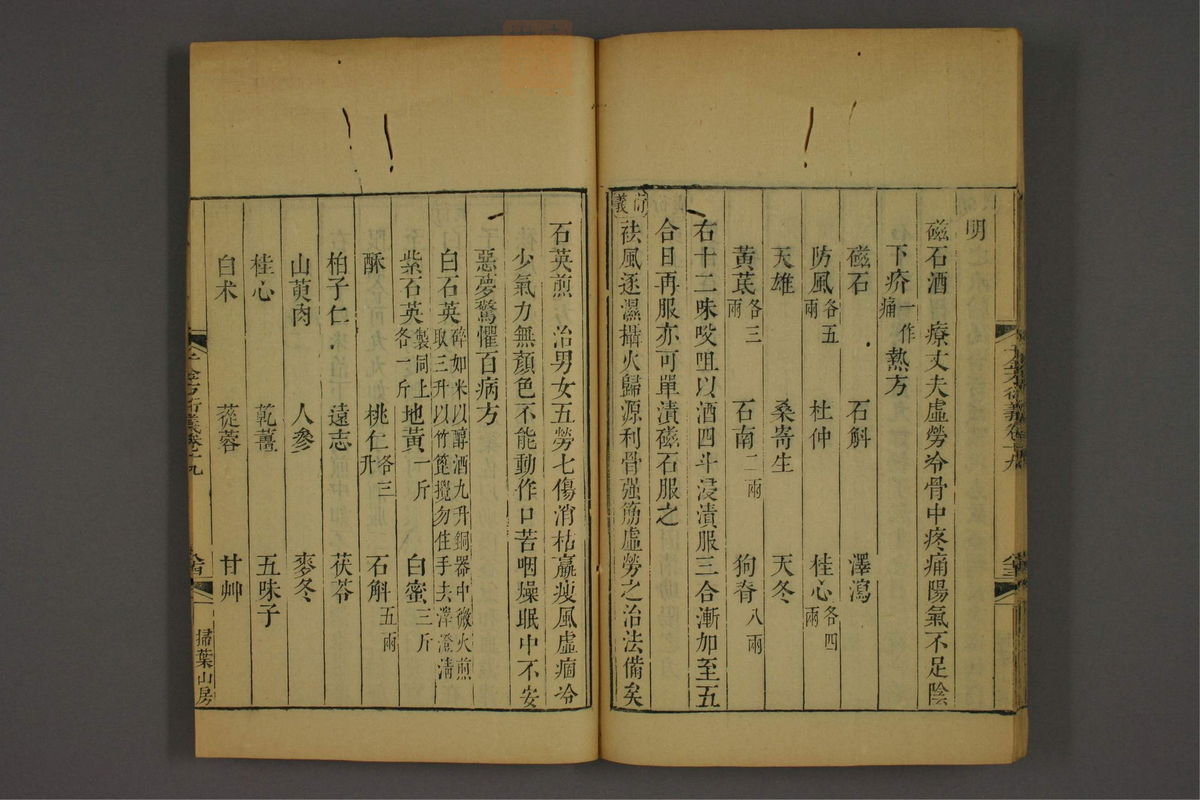 明
磁石酒　療丈夫虛勞冷骨中疼痛陽氣不足陰
下疥一作痛熱方
磁石　石斛　澤瀉
防風各五兩　杜仲　桂心各四兩
天雄　桑寄生　天冬
黃芪各三兩　石南二兩　狗脊八兩
右十二味㕮咀以酒四斗浸漬服三合漸加至五
合日再服亦可單漬磁石服之
衍義袪風逐濕攝火歸源利骨强筋虛勞之治法備矣
石英煎方　治男女五勞七傷消枯羸瘦風虛痼冷
少氣力無顏色不能動作口苦咽燥眠中不安
惡夢驚懼百病方
白石英碎如米以醇酒九升銅器中微火煎取三升以竹篦攪勿住手去滓澄淸
紫石英製同上各一斤　地黃一斤　白蜜三斤
酥　桃仁各三升　石斛五兩
柏子仁　遠志　茯苓
山萸肉　人參　麥冬
桂心　乾薑　五味子
白朮　蓯蓉　甘艸
掃葉山房